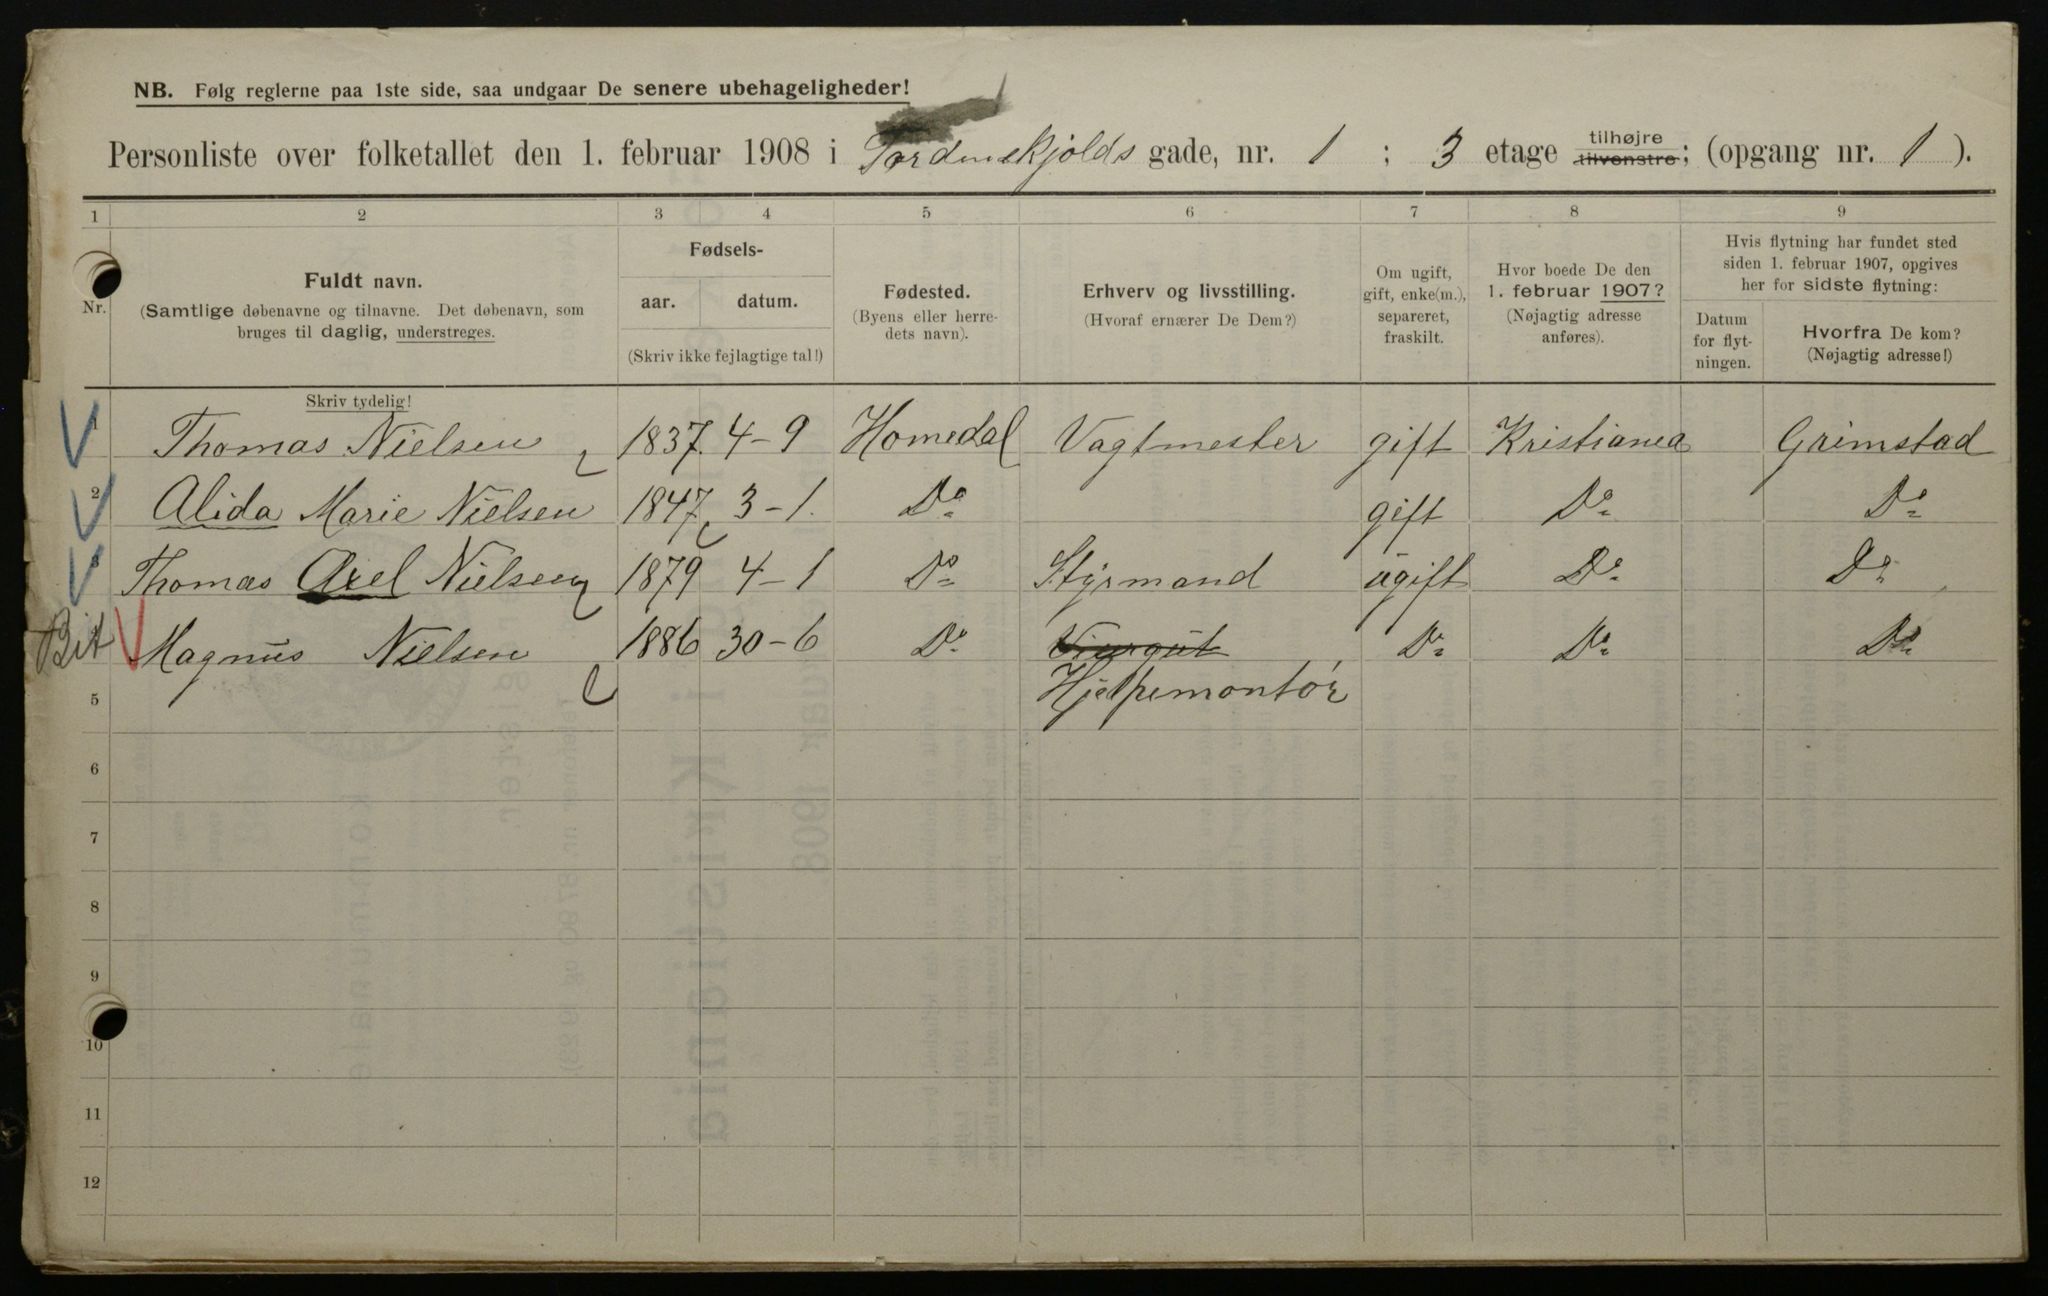 NB. Følg reglerne paa 1ste side, saa undgaar De senere ubehageligheder!
Personliste over folketallet den 1. februar 1908 i Tordenskjolds gade, nr. 1 ; 3 etage tilhøjre tilvenstre; (opgang nr. 1 ).
1 2 3 4 5 6 7 8 9
Nr.
Fuldt navn.
(Samtlige døbenavne og tilnavne. Det døbenavn, som
bruges til daglig, understreges.
Skriv tydelig!
Fødsels-
aar. datum.
(Skriv ikke fejlagtige tal!)
Fødested.
(Byens eller herre-
dets navn).
Erhverv og livsstilling.
(Hvoraf ernærer De Dem?)
Om ugift,
gift, enke(m.),
separeret,
fraskilt.
Hvor boede De den
1. februar 1907?
(Nøjagtig adresse
anføres).
Hvis flytning har fundet sted
siden 1. februar 1907, opgives
her for sidste flytning:
Datum
for flyt-
ningen.
Hvorfra De kom?
(Nøjagtig adresse!)
1 Thomas Nielsen 1837. 4-9 Homedal Vagtmester gift Kristiania Grimstad
2 Alida Marie Nielsen 1847 3-1. Do gift Do Do
3 Thomas Axel Nielsen 1879 4-1 Do Styrmand ugift Do Do
Magnus Nielsen 1886 30-6 Do Do Do Do
5 Hjelpemontør
6
7
8
9
10
11
12